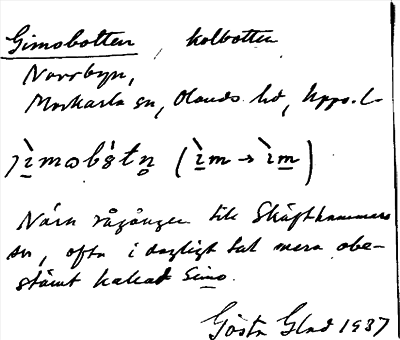 Gimobotten, kolbotten
Norrbyn,
Morkarla sn, Olands hd, Upps. l.
Nära rågången till Skäfthammars
sn, ofta i dagligt tal mera obe-
stämt kallad Gimo.
Gösta Glad 1937